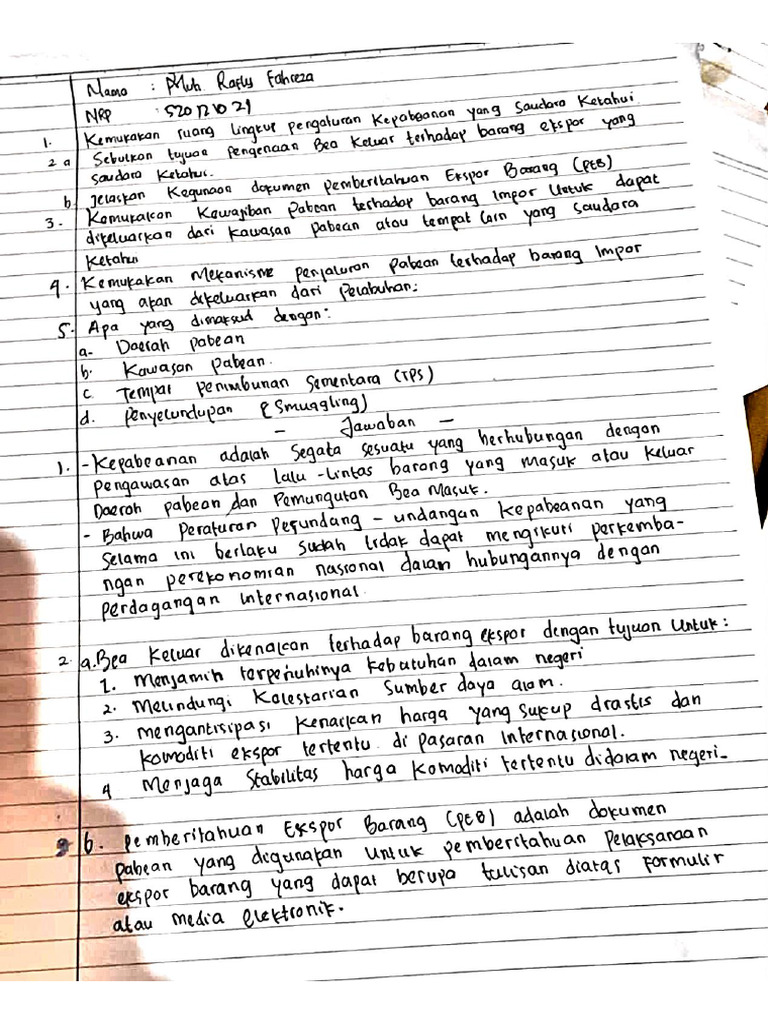 Nama : Muh. Rafly Fahreza
NRP : 520121021
1. Kemukakan ruang lingkup pengaturan Kepabeanan yang saudara Ketahui
2 a Sebutkan tujuan Pengenaan Bea Keluar terhadap barang ekspor yang
saudara Ketahui.
b Jelaskan Kegunaan dokumen pemberitahuan Ekspor Barang (PEB)
3. Kemukakan Kewajiban Pabean terhadap barang Impor Untuk dapat
dikeluarkan dari Kawasan pabean atau tempat lain yang saudara
Ketahui
4. Kemukakan Mekanisme penjaluran pabean terhadap barang Impor
yang akan dikeluarkan dari Pelabuhan:
5. Apa yang dimaksud dengan:
a- Daerah pabean
b. Kawasan Pabean.
c Tempat Penimbunan Sementara (TPS)
d. Penyelundupan (Smuggling)
- Jawaban -
1. - Kepabeanan adalah Segala sesuatu yang berhubungan dengan
pengawasan atas lalu-lintas barang yang masuk atau keluar
Daerah pabean dan Pemungutan Bea Masuk.
- Bahwa Peraturan Perundang-undangan Kepabeanan yang
Selama ini berlaku sudah tidak dapat mengikuti perkemba-
ngan perekonomian nasional dalam hubungannya dengan
perdagangan internasional.
2. a. Bea Keluar dikenakan terhadap barang ekspor dengan tujuan Untuk:
1. Menjamin terpenuhinya kebutuhan dalam negeri
2. Melindungi Kelestarian Sumber daya alam.
3. mengantisipasi Kenaikan harga yang sukup drastis dan
komoditi ekspor tertentu di pasaran Internasional.
4 Menjaga Stabilitas harga Komoditi tertentu didalam negeri-
b. Pemberitahuan Ekspor Barang (PEB) adalah dokumen
pabean yang digunakan Untuk pemberitahuan Pelaksanaan
ekspor barang yang dapat berupa tulisan diatas Formulir
atau media elektronik.